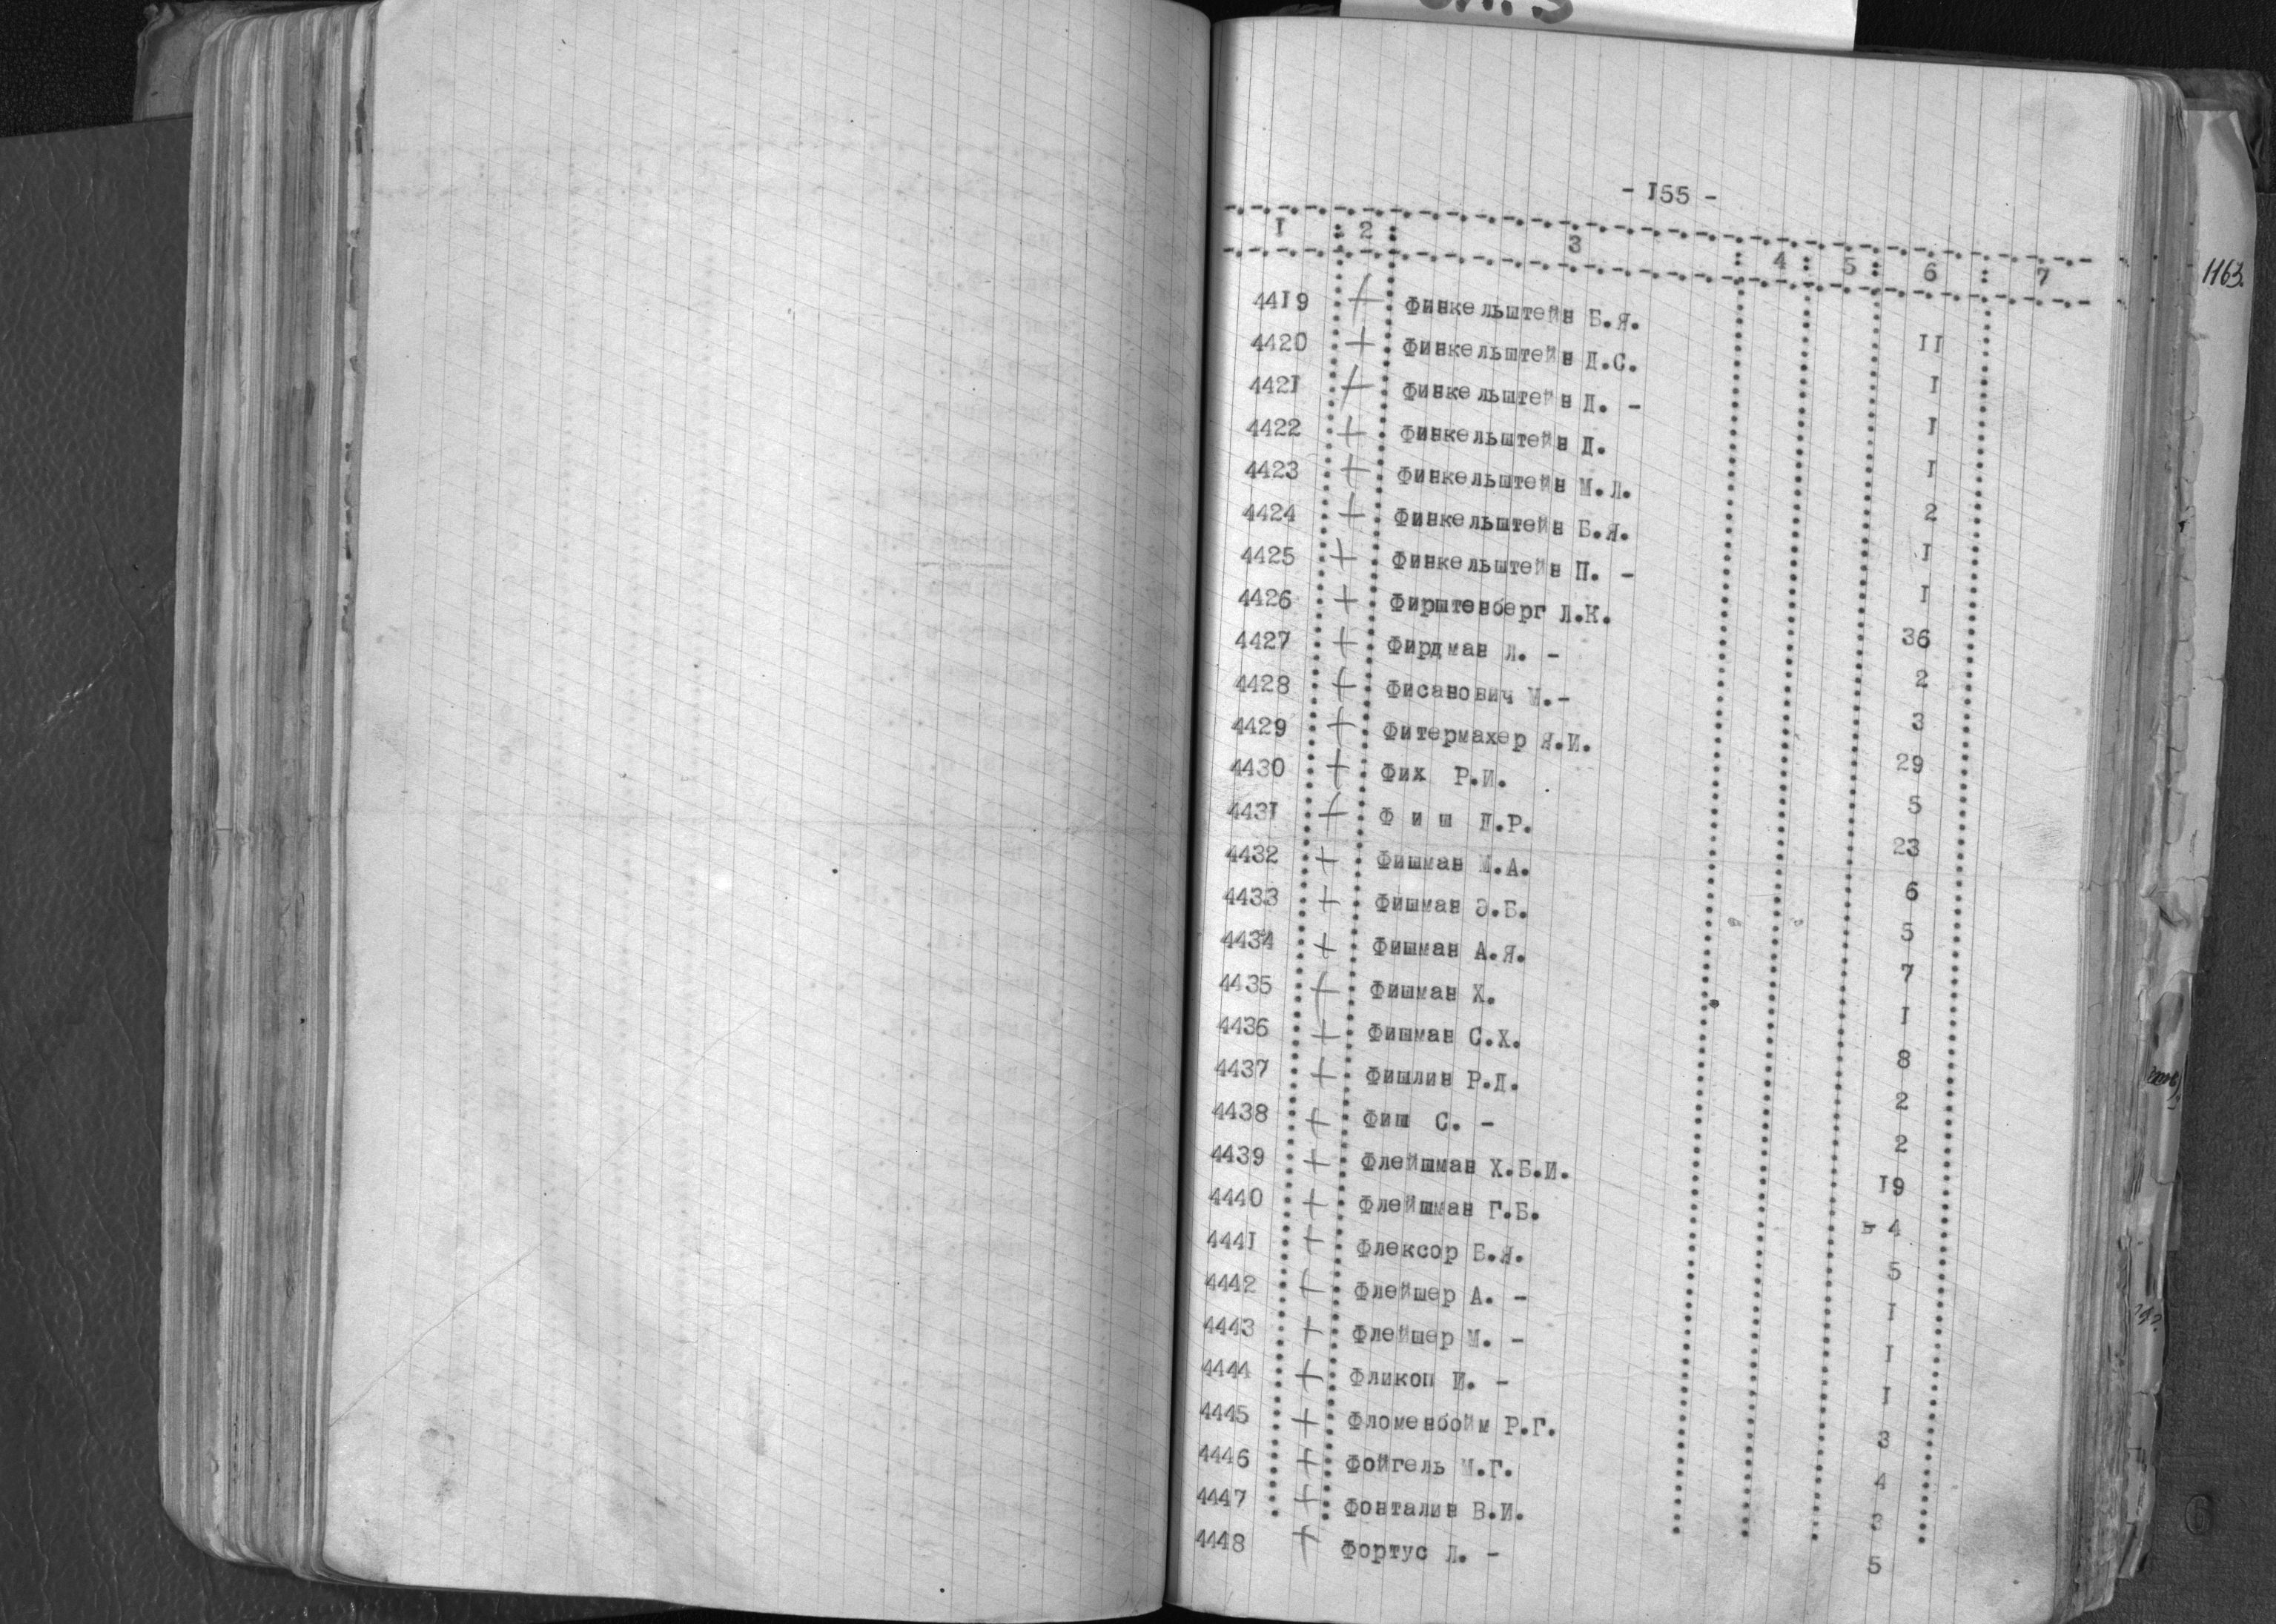 - I55 -
I : 2 : 3 : 4 : 5 : 6 : 7
1163.
44I9 + Финкельштейн Б.Я. II
4420 + Финкельштейн Д.С. I
442I + Финкельштейн Д. - I
4422 + Финкельштейн Д. I
4423 + Финкельштейн М.Л. 2
4424 + Финкельштейн Б.Я. I
4425 + Финкельштейн П. - I
4426 + Фирштенберг Л.К. 36
4427 + Фирдман Л. - 2
4428 + Фисанович М.- 3
4429 + Фитермахер Я.И. 29
4430 + Фих Р.И. 5
443I + Ф и ш Д.Р. 23
4432 + Фишман М.А. 6
4433 + Фишман Э.Б. 5
4434 + Фишман А.Я. 7
4435 + Фишман Х. I
4436 + Фишман С.Х. 8
4437 + Фишлин Р.Д. 2
4438 + Фиш С. - 2
4439 + Флейшман Х.Б.И. I9
4440 + Флейшман Г.Б. 4
444I + Флексор Б.Я. 5
4442 + Флейшер А. - I
4443 + Флейшер М. - I
4444 + Фликоп И. - I
4445 + Фломенбойм Р.Г. 3
4446 + Фойгель М.Г. 4
4447 + Фонталин В.И. 3
4448 + Фортус Л. - 5